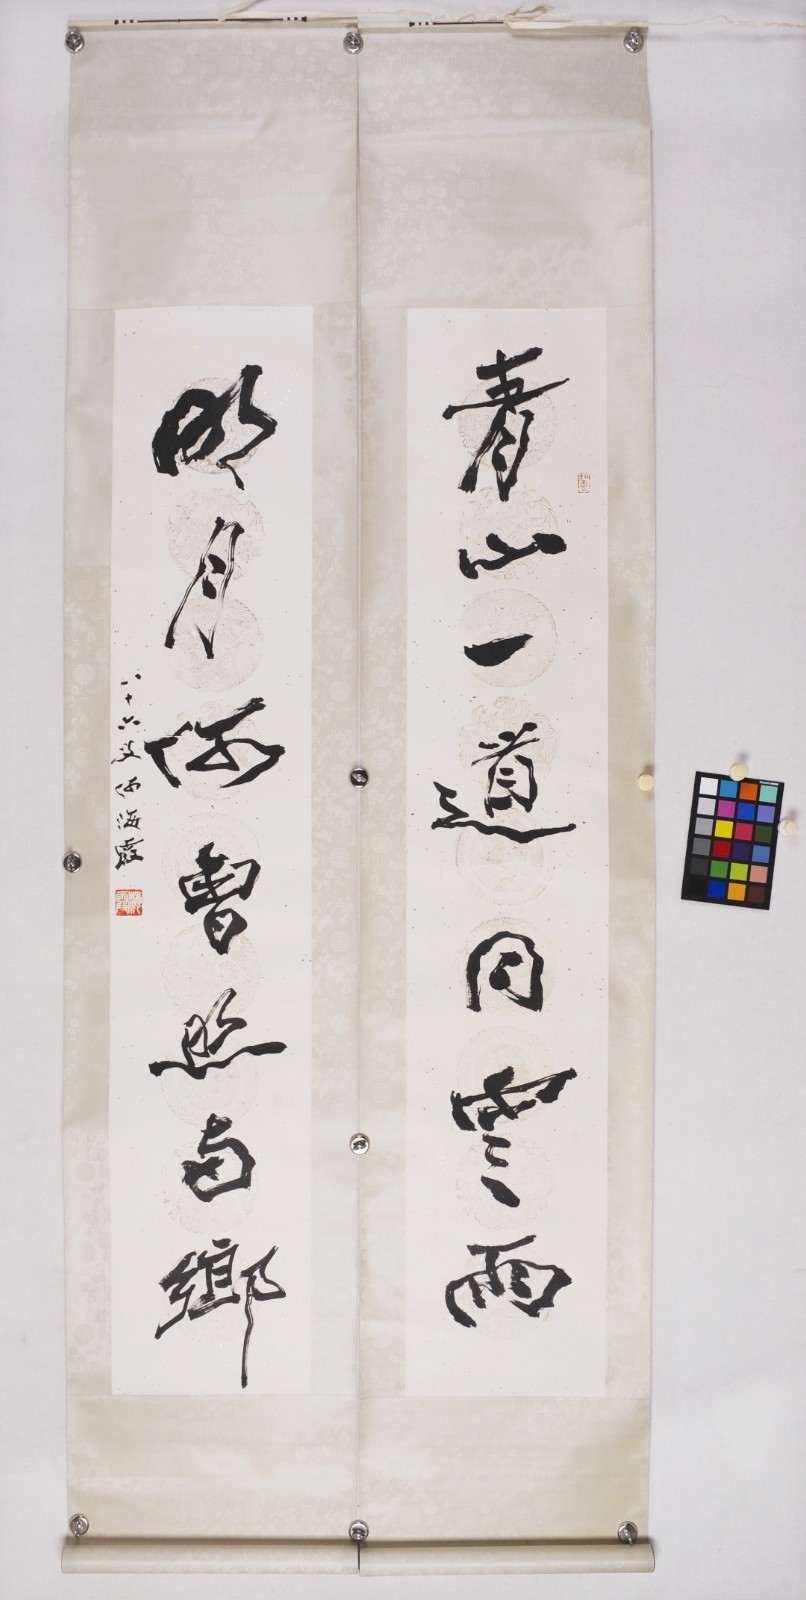 青山一道同雲雨
明月何曾照兩鄉
八十六叟何海霞